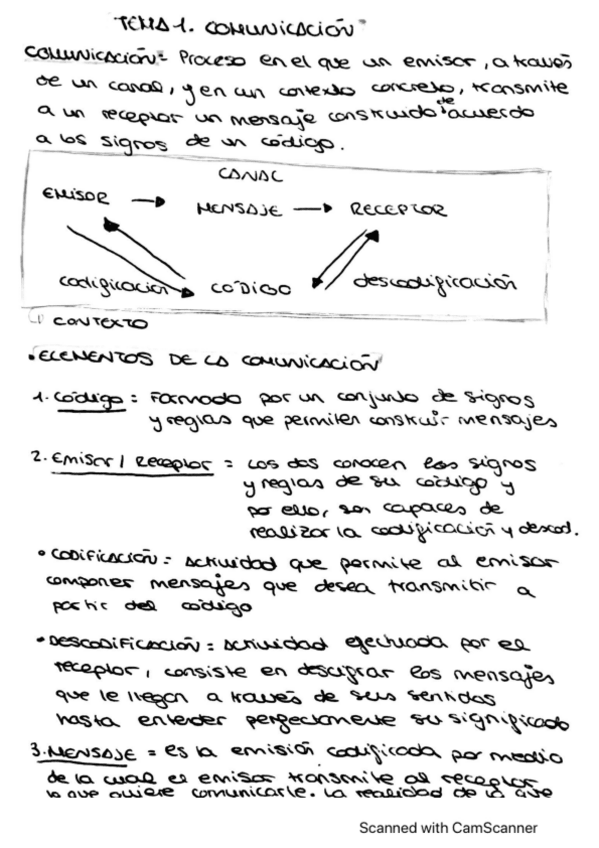 TEMA 1. COMUNICACIÓN
COMUNICACIÓN = Proceso en el que un emisor, a través
de un canal, y en un contexto concreto, transmite
a un receptor un mensaje construido de acuerdo
a los signos de un código.
CANAL
EMISOR → MENSAJE → RECEPTOR
codificación CÓDIGO descodificación
CONTEXTO
• ELEMENTOS DE LA COMUNICACIÓN
1. Código = Formado por un conjunto de signos
y reglas que permiten construir mensajes
2. Emisor / Receptor = Los dos conocen los signos
y reglas de su código y
por ello, son capaces de
realizar la codificación y descod.
• CODIFICACIÓN = Actividad que permite al emisor
componer mensajes que desea transmitir a
partir del código
• DESCODIFICACIÓN = Actividad efectuada por el
receptor, consiste en descifrar los mensajes
que le llegan a través de sus sentidos
hasta entender perfectamente su significado
3. MENSAJE = es la emisión codificada por medio
de la cual el emisor transmite al receptor
lo que quiere comunicarle. La realidad de la que
Scanned with CamScanner